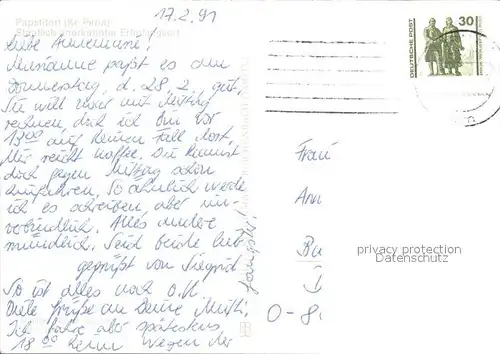 17.2.91
Papstdorf (Kr Pirna)
Staatlich anerkannter Erholungsort
Liebe Annemarie!
Marianne paßt es am
Donnerstag, d. 28.2. gut.
Sie will zwar mit Mittag
rechnen, doch ich bin vor
13⁰⁰ auf keinen Fall dort.
Mir reicht Kaffee. Du kannst
doch gegen Mittag schon
So ähnlich werde
ich es schreiben, aber un-
verbindlich. Alles andere
mündlich. Seid beide lieb
gegrüßt von Siegrid
So ist alles noch o.K
Viele Grüße an Deine Mutti,
Ich fahre aber spätestens
18⁰⁰ heim wegen der
DEUTSCHE POST
30
Frau
Ann
Ba
D
O-8
privacy protection
Datenschutz